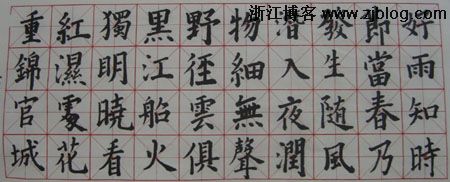 浙江博客 www.zjblog.com
好雨知時
即當春乃
發生随風
潜入夜潤
物細無聲
野徑雲俱
黑江船火
獨明曉看
紅濕處花
重錦官城